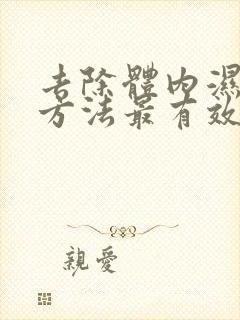 去除體內濕
方法最有效
親愛